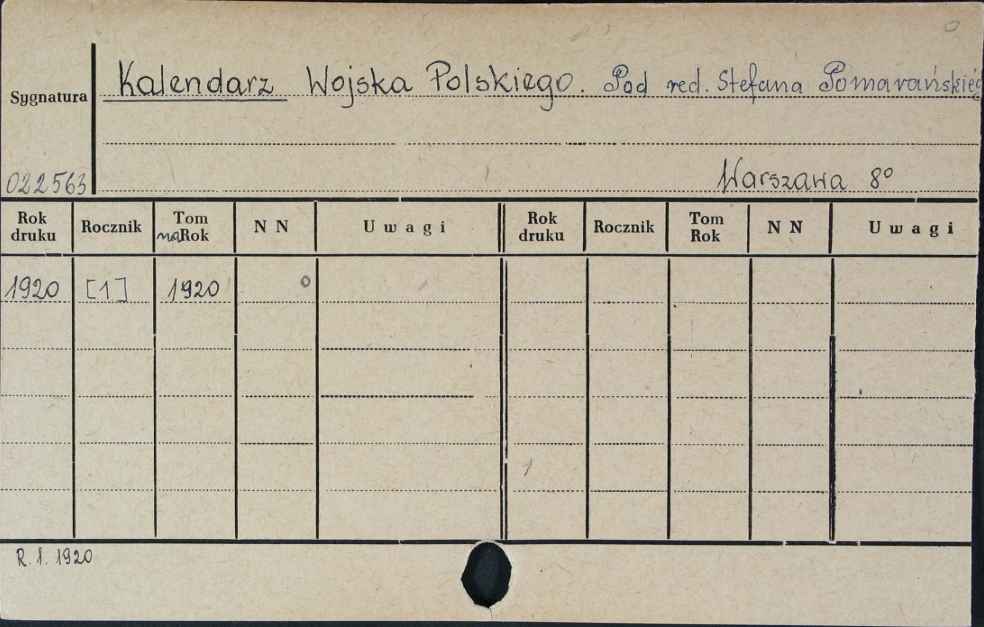 Kalendarz Wojska Polskiego. Pod red. Stefana Pomarańskieg
Sygnatura
022563
Warszawa 8°
Rok druku Rocznik Tom na Rok N N Uwagi Rok druku Rocznik Tom Rok N N Uwagi
1920 [1] 1920
R. 1. 1920